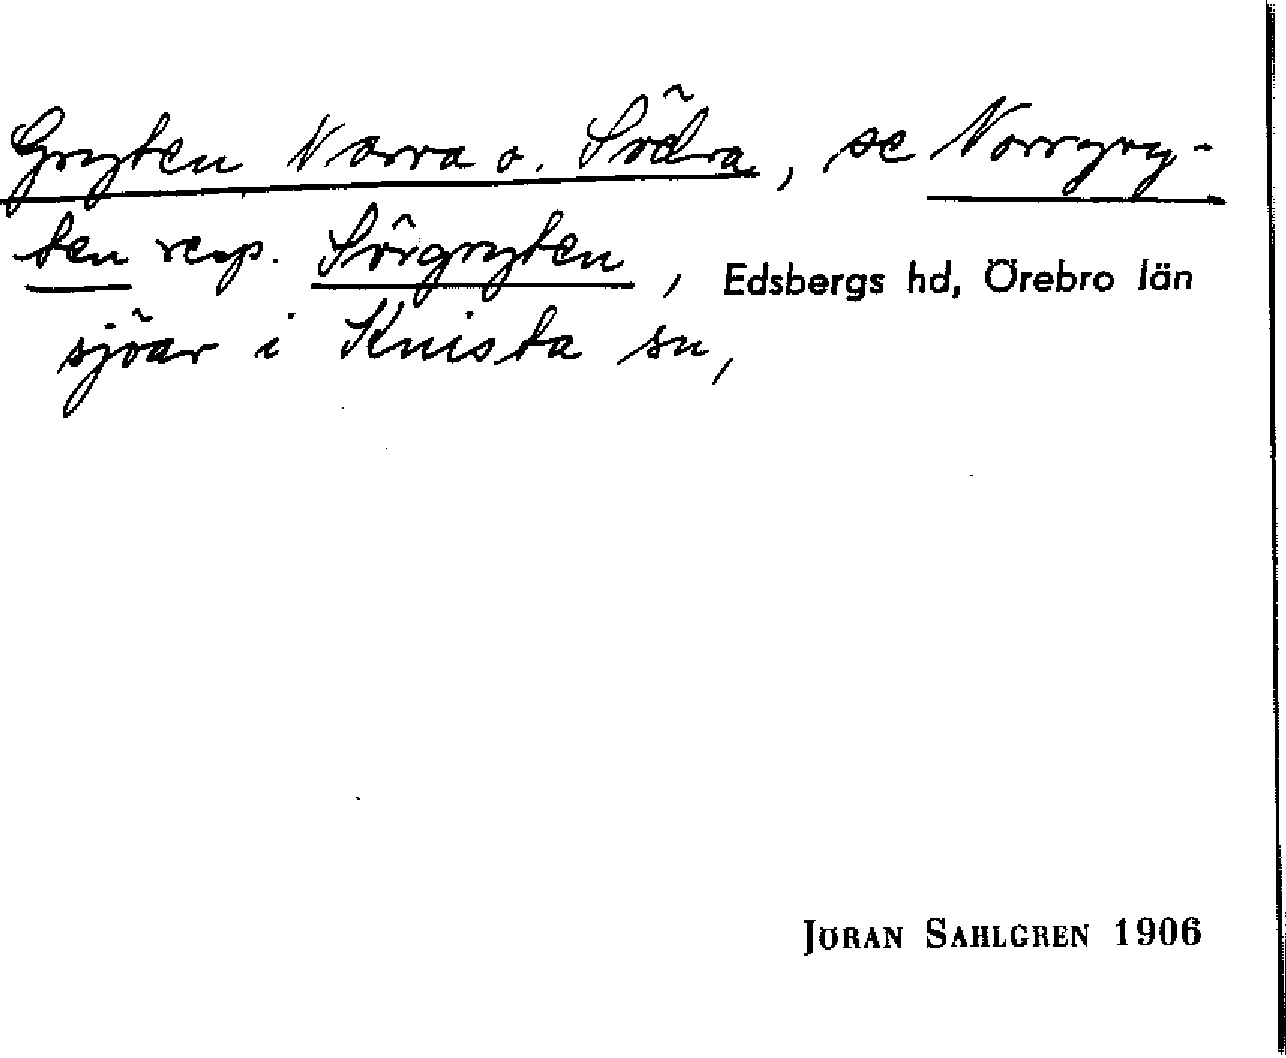 Gryten Norra o. Södra, se Norrgry-
ten resp. Sörgryten, Edsbergs hd, Örebro län
sjöar i Knista sn,
JÖRAN SAHLGREN 1906